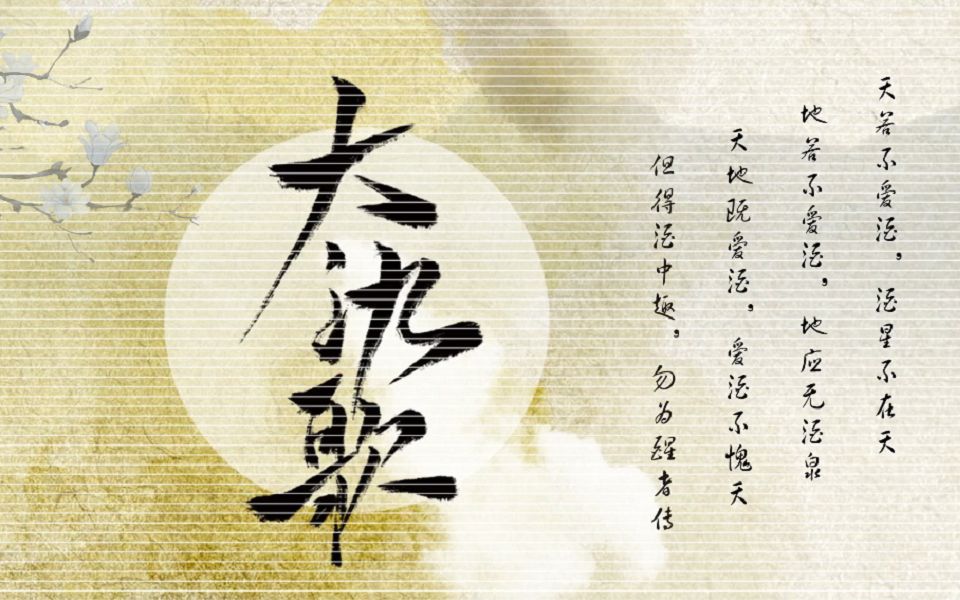 大氿歌
天若不爱酒，酒星不在天
地若不爱酒，地应无酒泉
天地既爱酒，爱酒不愧天
但得酒中趣，勿为醒者传